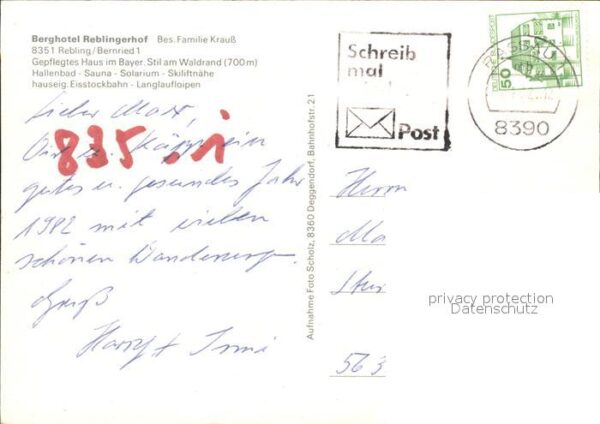 Berghotel Reblingerhof Bes. Familie Krauß
8351 Rebling/Bernried 1
Gepflegtes Haus im Bayer. Stil am Waldrand (700 m)
Hallenbad - Sauna - Solarium - Skiliftnähe
hauseig. Eisstockbahn - Langlaufloipen
Lieber
835
gutes u. gesundes Jahr
1982 mit vielen
schönen
Gruß
Harry + Irmi
Aufnahme Foto Scholz, 8360 Deggendorf, Bahnhofstr. 21
Schreib
mal
Post
PASSAU
8390
50
Herrn
Ma
563
privacy protection
Datenschutz